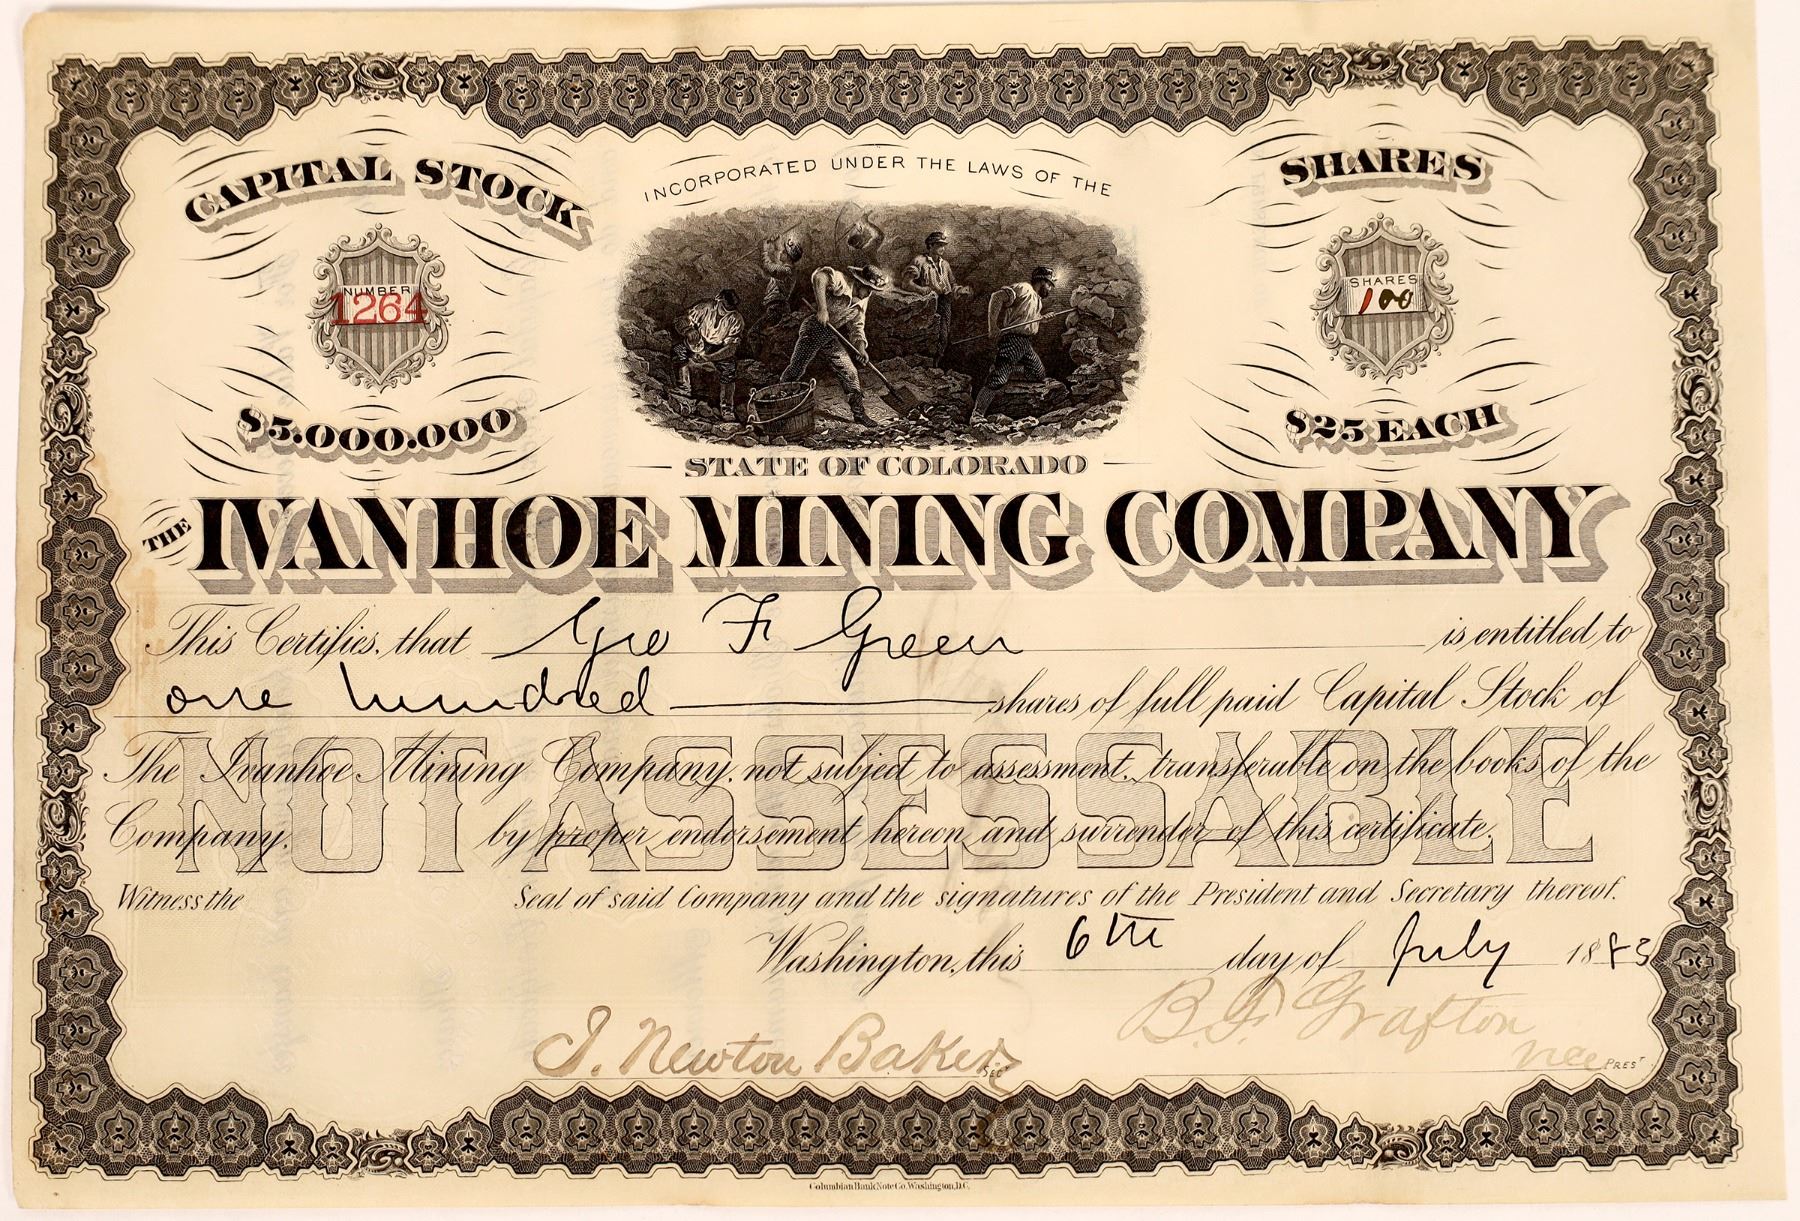 CAPITAL STOCK
INCORPORATED UNDER THE LAWS OF THE
SHARES
NUMBER
1264
SHARES
100
$5.000.000
$25 EACH
STATE OF COLORADO
THE IVANHOE MINING COMPANY
This Certifies, that Geo F Green is entitled to
one hundred shares of full paid Capital Stock of
NOT ASSESSABLE
The Ivanhoe Mining Company, not subject to assessment, transferable on the books of the
Company, by proper endorsement hereon and surrender of this certificate.
Witness the Seal of said Company and the signatures of the President and Secretary thereof.
Washington, this 6th day of July 1883
J. Newton Baker SEC
B. F. Grafton
vice PREST
Columbian Bank Note Co. Washington, D.C.